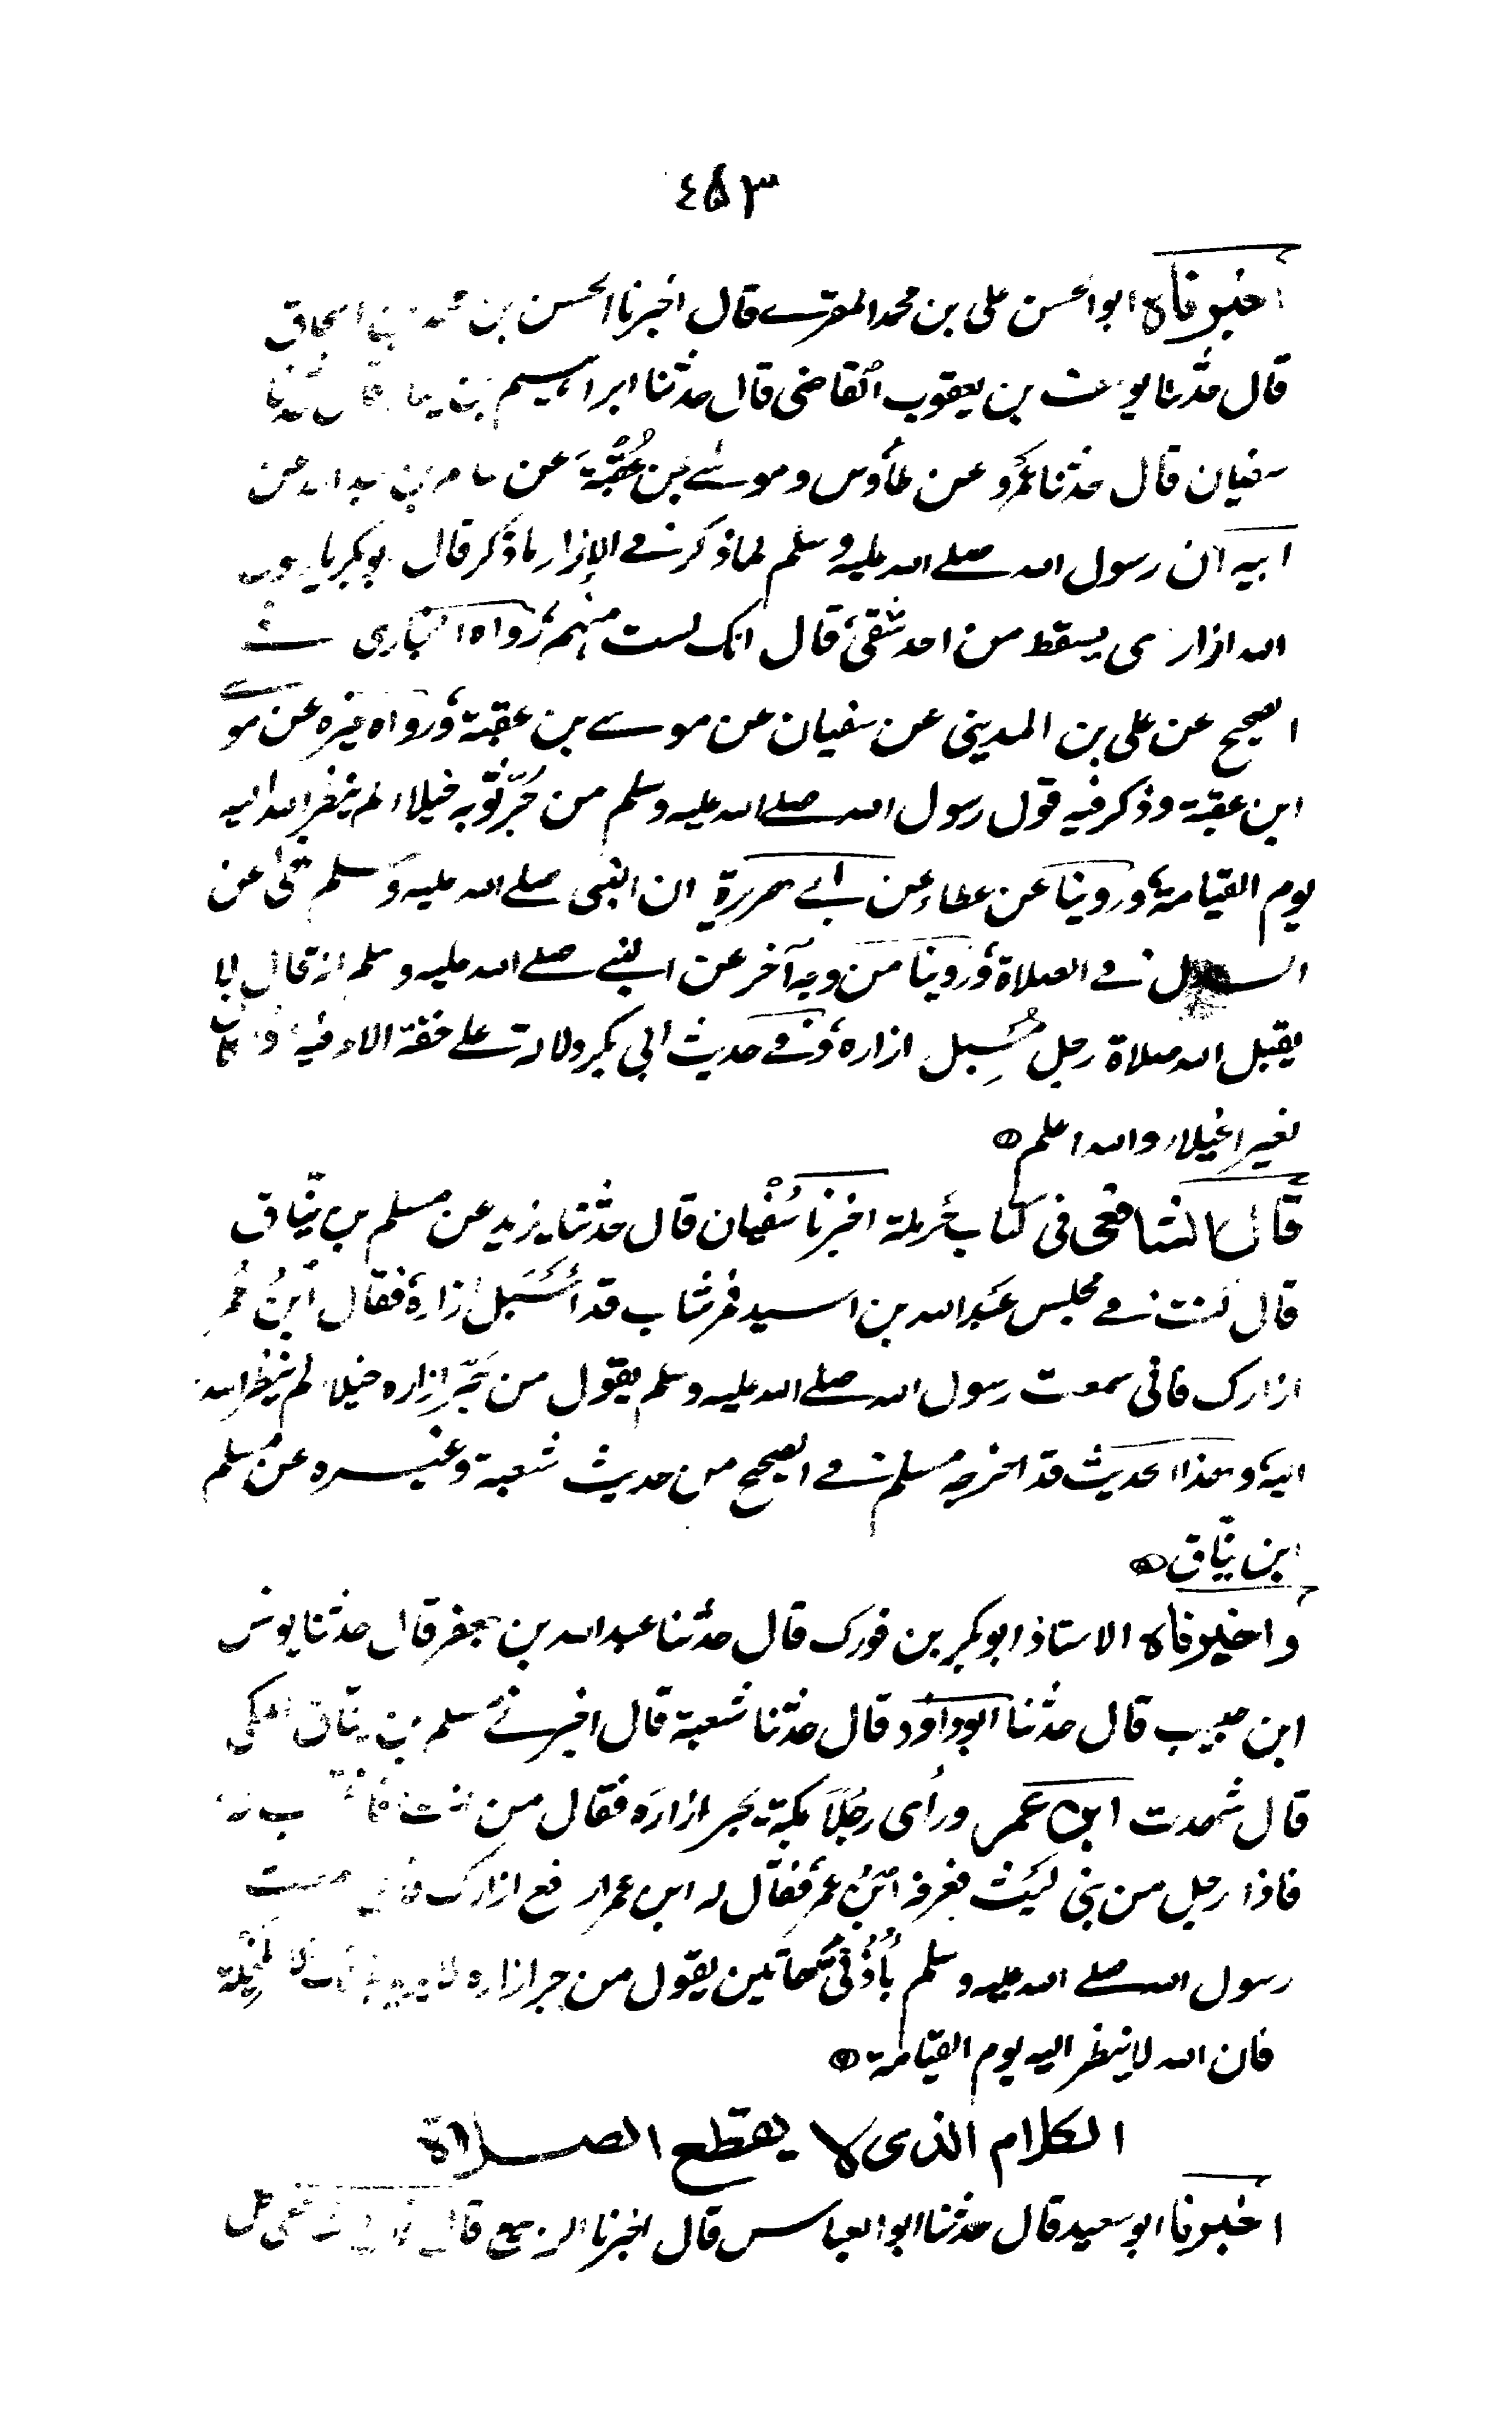 ٤٥٣
اخبرناه ابو الحسن على بن محمد المقرے قال اخبرنا الحسن بن محمد بن اسحاق
قال حدثنا يوسف بن يعقوب القاضى قال حدثنا ابراهيم بن قال حدثنا
سفيان قال حدثنا عمرو عن طاؤس وموسے بن عُقْبَةَ عن سالم بن عبد الله عن
ابيه ان رسول الله صلے الله عليه وسلم لما ذكر فے الإزار ما ذكر قال ابو بكر يا رسول
الله ازارى يسقط من احد شقى قال انك لست منهم ورواه البخارى فے
الصحيح عن على بن المدينى عن سفيان عن موسے بن عقبة ورواه غيره عن موسے
ابن عقبة وذكر فيه قول رسول الله صلے الله عليه وسلم من جَرّ ثوبه خيلاء لم ينظر الله اليه
يوم القيامة وروينا عن عطاء عن ابے هريرة ان النبى صلے الله عليه وسلم نهى عن
السدل فے الصلاة وروينا من وجه آخر عن النبے صلے الله عليه وسلم انه قال لا
يقبل الله صلاة رجل مُسْبِل ازاره وفے حديث ابى بكر دلالة علے خفة الامر فيه اذا كان
لغير الخيلاء والله اعلم ه
قال الشافعى فى كتاب حَرملة اخبرنا سُفْيان قال حدثنا يزيد عن مسلم بن ينّاق
قال كنت فے مجلس عَبد الله بن اسيد فمر شاب قد أَسْبَل إزاره فقال ابنُ عُمر
ازارك فانى سمعت رسول الله صلے الله عليه وسلم يقول من جَرّ ازاره خيلاء لم ينظر الله
اليه وهذا الحديث قد اخرجه مسلم فے الصحيح من حديث شعبة وغيره عن مُسلم
ابن ينّاق ه
واخبرناه الاستاذ ابو بكر بن فورك قال حدثنا عبد الله بن جعفر قال حدثنا يونس
ابن حبيب قال حدثنا ابو داود قال حدثنا شعبة قال اخبرنے مسلم بن ينّاق المكى
قال شهدت ابن عمر ورأى رجلًا بمكة يجر ازاره فقال من انت فانتسب له
فاذا رجل من بنى ليث فعرفه ابنُ عمر فقال له ابن عمر ارفع ازارك فانى سمعت
رسول الله صلے الله عليه وسلم بأُذُنىَّ هاتين يقول من جر ازاره لا يريد بذلك الا المَخِيلة
فان الله لا ينظر اليه يوم القيامة ه
الكلام الذى لا يقطع الصلاة
اخبرنا ابو سعيد قال حدثنا ابو العباس قال اخبرنا الربيع قال قال الشافعى كل